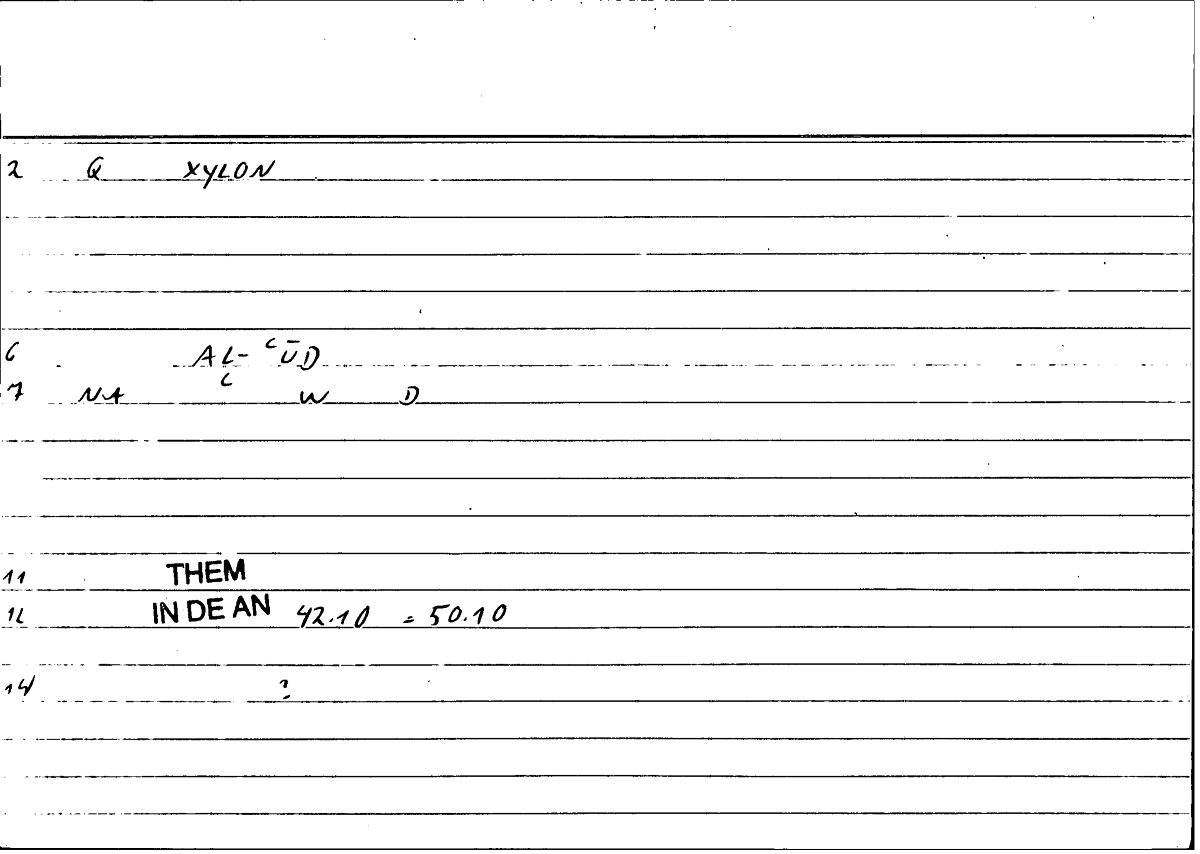 2 Q XYLON
6 AL-ʿŪD
7 NA ʿ W D
11 THEM
12 IN DE AN 42.10 = 50.10
14 ?